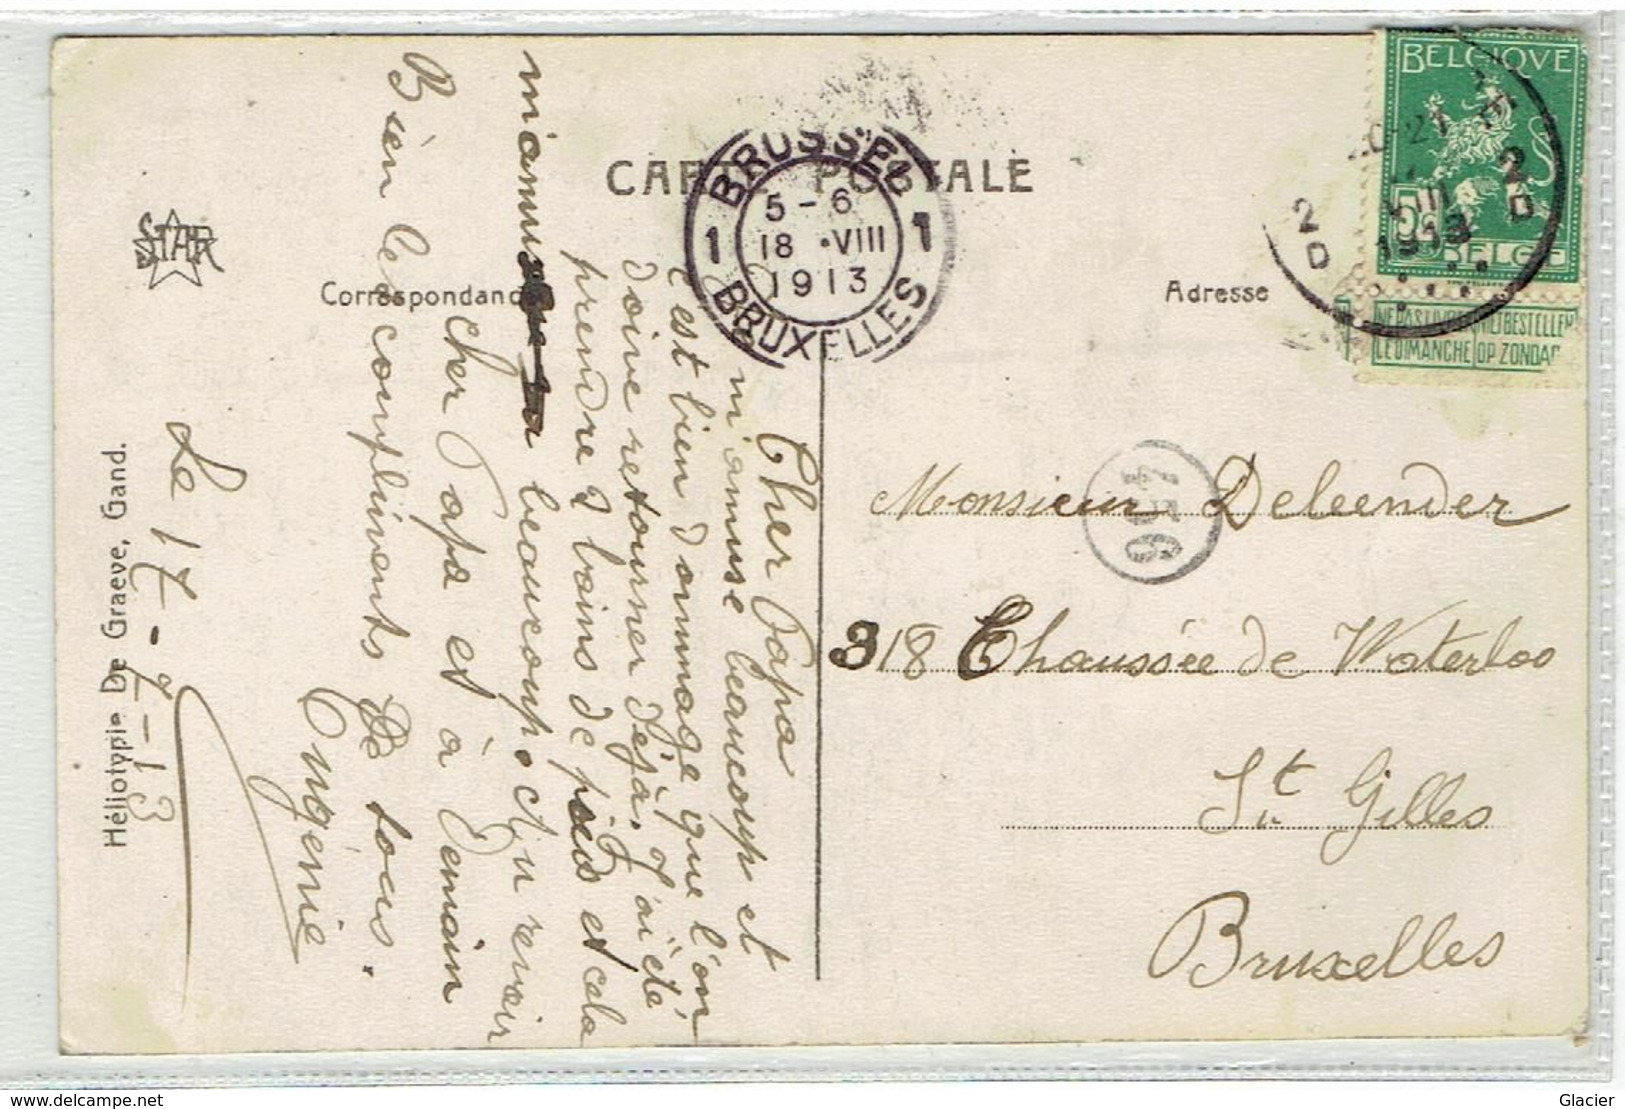 CARTE POSTALE
Correspondance
Adresse
BRUSSEL
1 5-6 1
18 · VIII
1913
BRUXELLES
BELGIQUE
5
BELGIE
NE PAS LIVRER
LE DIMANCHE
NIET BESTELLEN
OP ZONDAG
2 D
VIII
1913
2 D
456
STAR
Héliotypie De Graeve, Gand.
Le 17-9-13
Cher Papa
m'amuse beaucoup et
c'est bien dommage que l'on
doive retourner déjà. J'ai été
prendre 2 bains de pieds et cela
m'amuse beaucoup. Au revoir
cher Papa et à demain
Bien les compliments de tous.
Eugénie
Monsieur Deleender
318 Chaussée de Waterloo
St Gilles
Bruxelles
Glacier